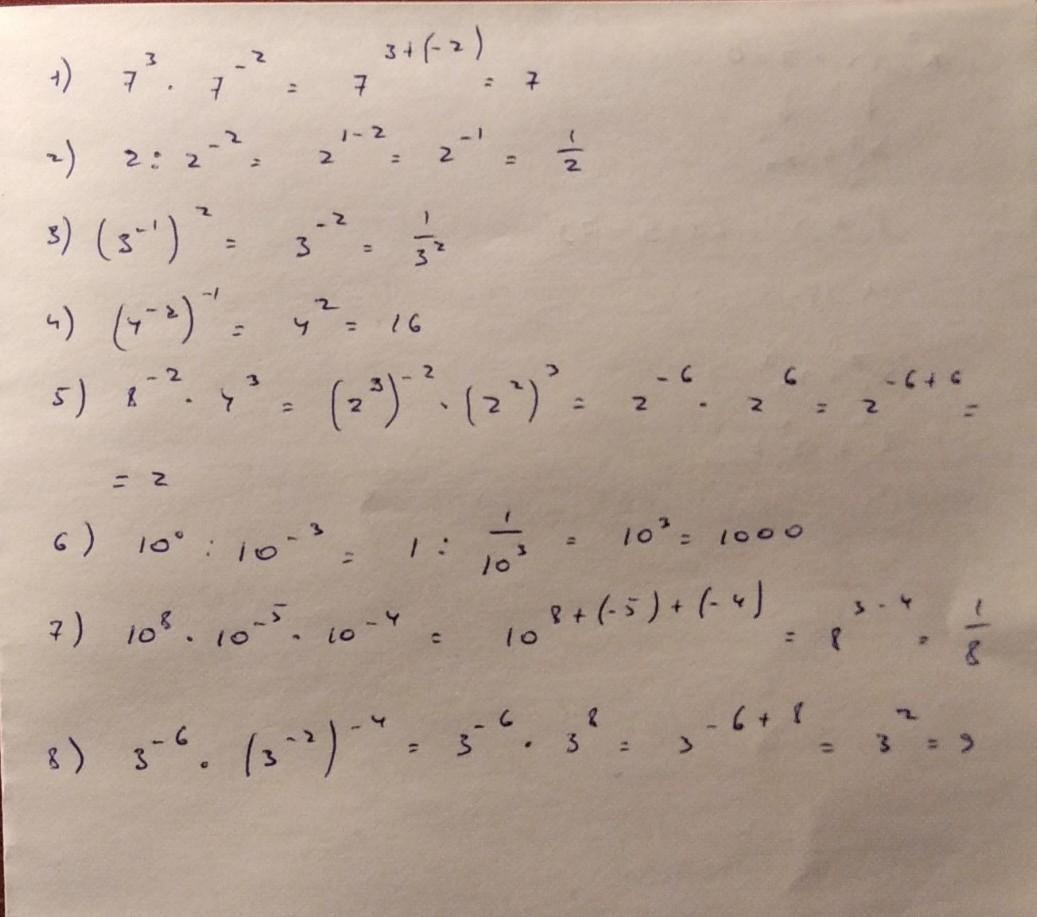 1) 7³ · 7⁻² = 7³⁺⁽⁻²⁾ = 7
2) 2 : 2⁻² = 2¹⁻² = 2⁻¹ = 1/2
3) (3⁻¹)² = 3⁻² = 1/3²
4) (4⁻²)⁻¹ = 4² = 16
5) 8⁻² · 4³ = (2³)⁻² · (2²)³ = 2⁻⁶ · 2⁶ = 2⁻⁶⁺⁶ =
= 2
6) 10⁰ : 10⁻³ = 1 : 1/10³ = 10³ = 1000
7) 10⁸ · 10⁻⁵ · 10⁻⁴ = 10⁸⁺⁽⁻⁵⁾⁺⁽⁻⁴⁾ = 8³⁻⁴ = 1/8
8) 3⁻⁶ · (3⁻²)⁻⁴ = 3⁻⁶ · 3⁸ = 3⁻⁶⁺⁸ = 3² = 9